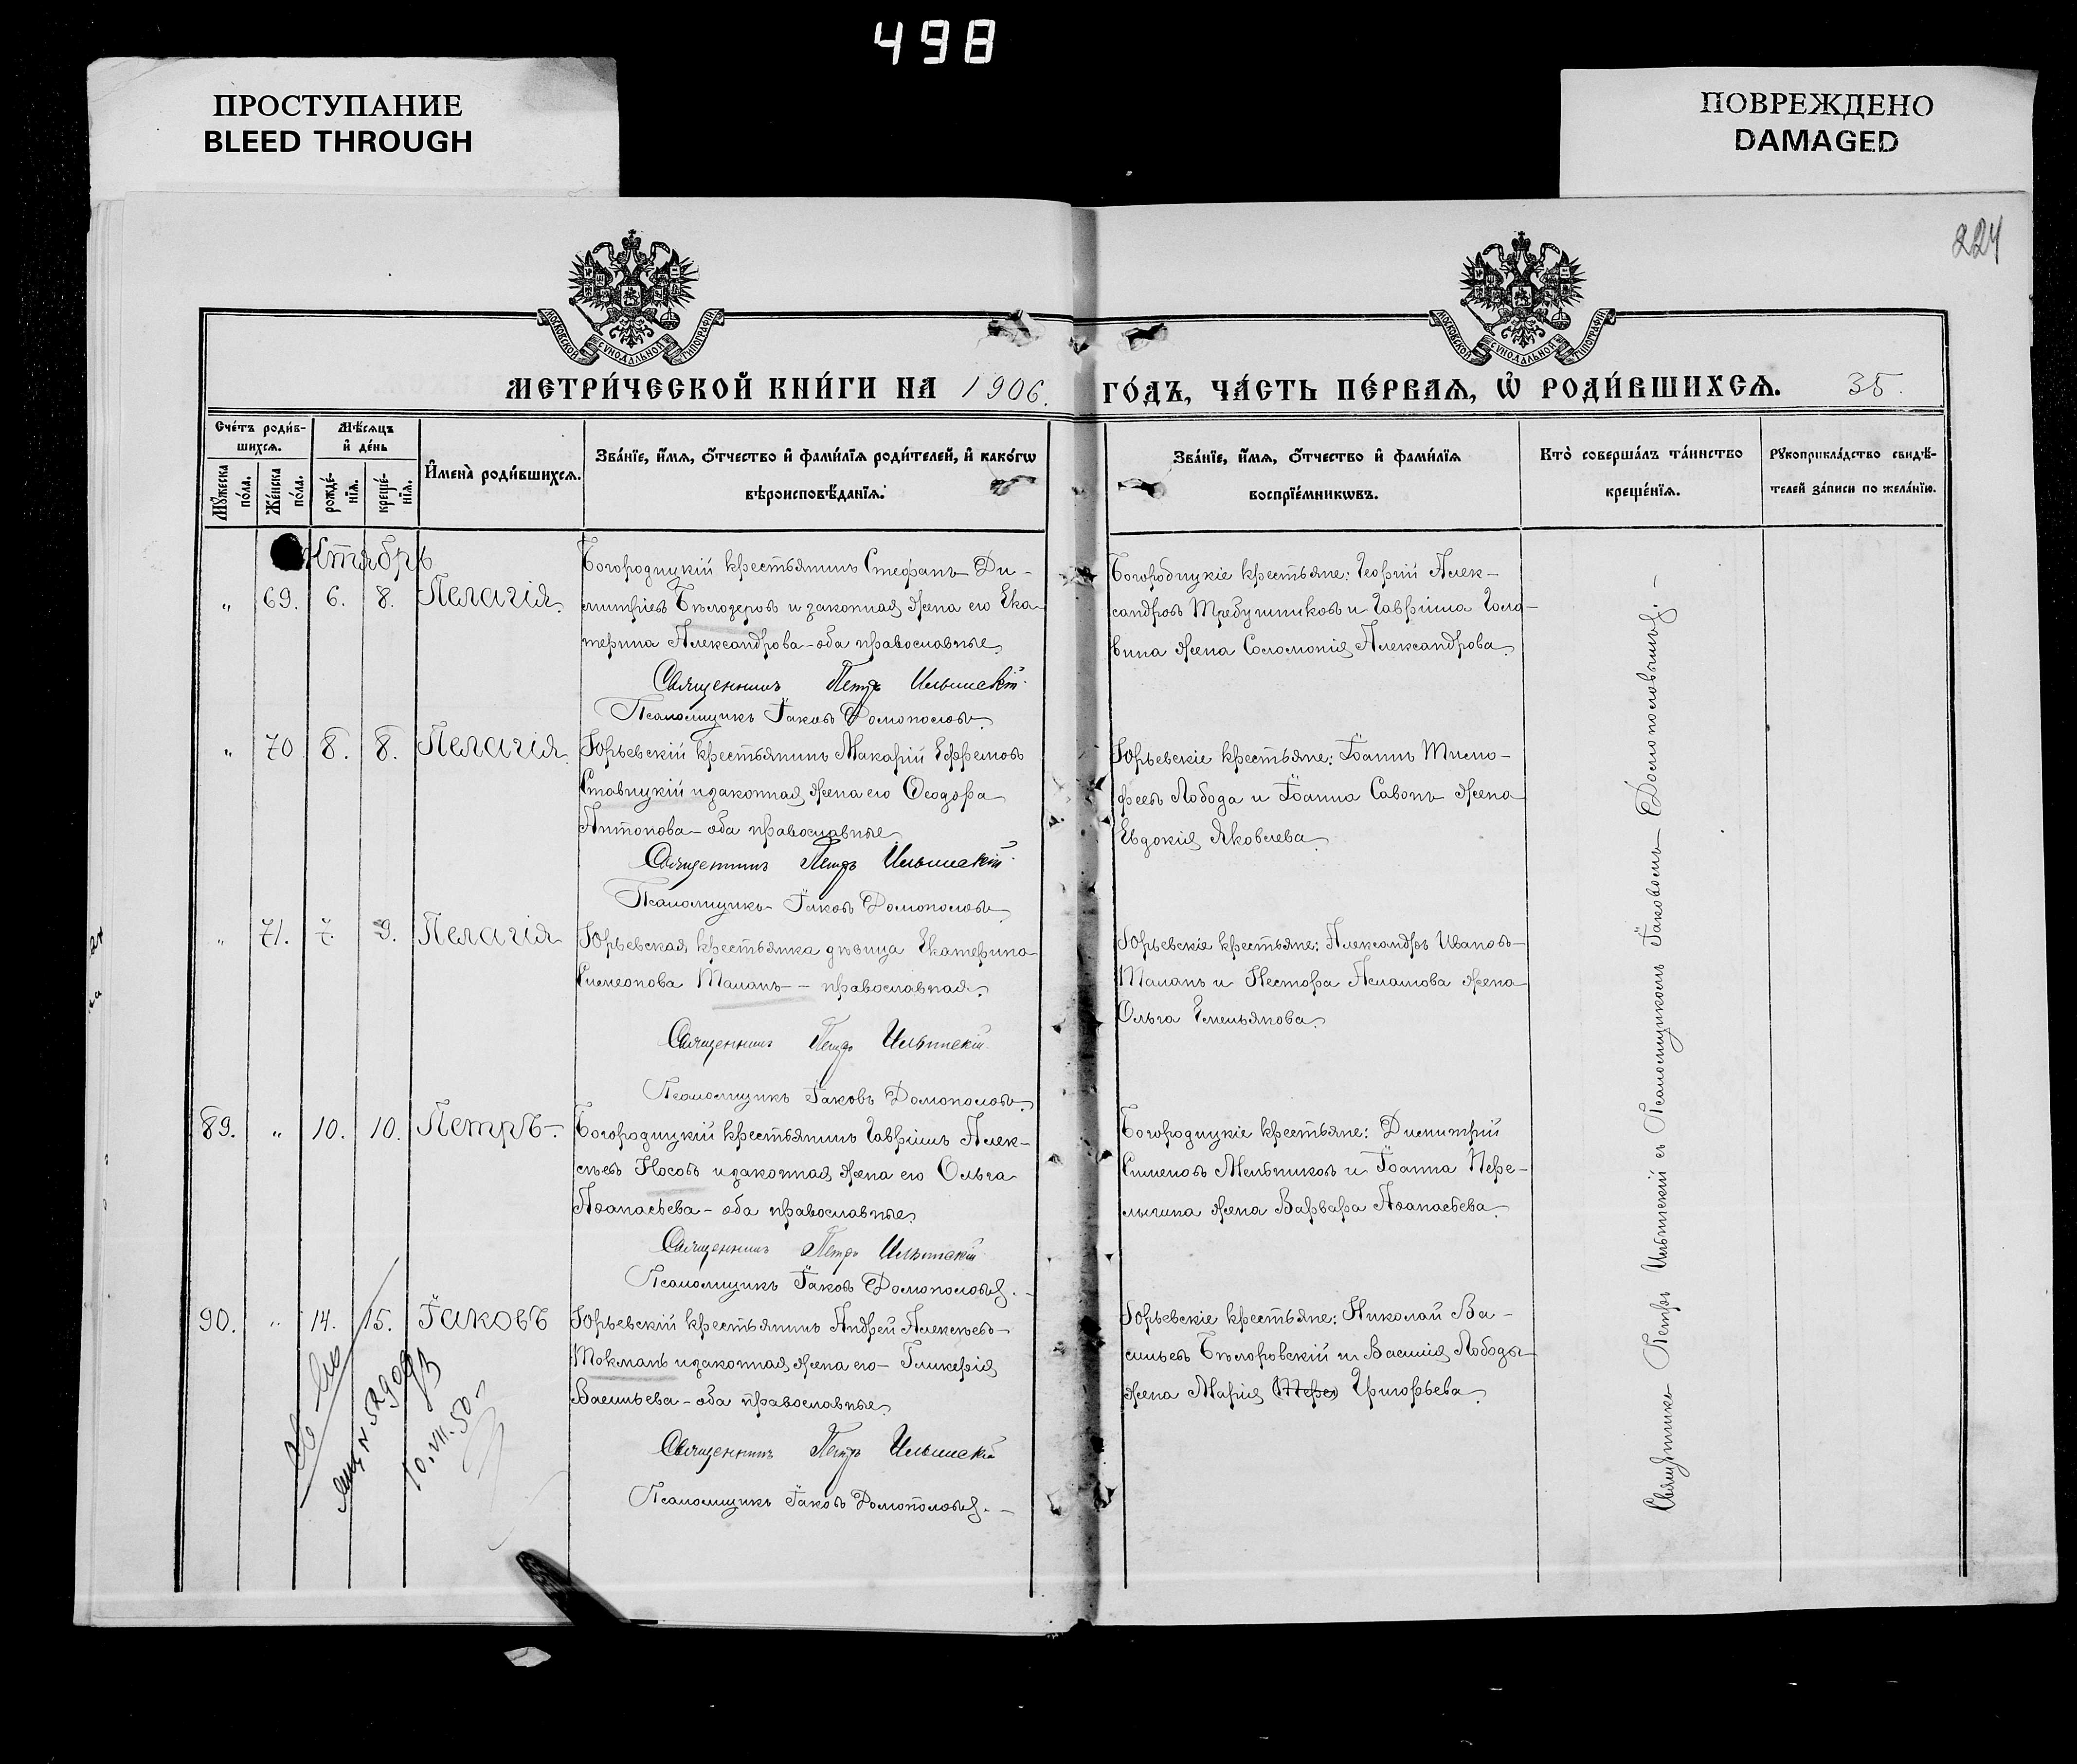 498
ПРОСТУПАНИЕ
BLEED THROUGH
ПОВРЕЖДЕНО
DAMAGED
224
МОСКОВСКОЙ СѴНОДАЛЬНОЙ ТИПОГРАФІИ
МОСКОВСКОЙ СѴНОДАЛЬНОЙ ТИПОГРАФІИ
МЕТРИ́ЧЕСКОЙ КНИ́ГИ НА 1906.
ГО́ДЪ, ЧА́СТЬ ПЕ́РВАѦ, Ѡ҆ РОДИ́ВШИХСѦ. 35.
Сче́тъ роди́в-
шихсѧ.
Мꙋ́жеска по́ла.
Же́нска по́ла.
Мѣ́сѧцъ
и҆ де́нь
рожде́-
нїѧ.
креще́-
нїѧ.
И҆мена̀ роди́вшихсѧ.
Зва́нїе, и҆́мѧ, ѻ҆́тчество и҆ фами́лїѧ роди́телей, и҆ како́гѡ
вѣроисповѣ́данїѧ.
Зва́нїе, и҆́мѧ, ѻ҆́тчество и҆ фами́лїѧ
воспрїе́мникѡвъ.
Кто̀ соверша́лъ та́инство
креще́нїѧ.
Рꙋкоприкла́дство свидѣ́-
телей за́писи по жела́нїю.
Октябрь
„ 69. 6. 8. Пелагія
Богородицкій крестьянинъ Стефанъ Ди-
митріевъ Бѣлозеровъ и законная жена его Ека-
терина Александрова - оба православные.
Священникъ Петръ Ильинскій
Псаломщикъ Іаковъ Домополовъ
Богородицкіе крестьяне: Георгій Алек-
сандровъ Требушниковъ и Гавріила Голо-
вина жена Соломонія Александрова.
„ 70 8. 8. Пелагія
Юрьевскій крестьянинъ Макарій Ефремовъ
Ставицкій и законная жена его Ѳеодора
Антонова - оба православные
Священникъ Петръ Ильинскій
Псаломщикъ Іаковъ Домополовъ
Юрьевскіе крестьяне: Іоаннъ Тимо-
феевъ Лобода и Іоанна Савонъ жена
Евдокія Яковлева.
„ 71. 7. 9. Пелагія
Юрьевская крестьянка дѣвица Екатерина
Симеонова Таманъ - православная.
Священникъ Петръ Ильинскій
Псаломщикъ Іаковъ Домополовъ.
Юрьевскіе крестьяне: Александръ Ивановъ
Таманъ и Нестора жена
Ольга Емельянова.
89. „ 10. 10. Петръ-
Богородицкій крестьянинъ Гавріилъ Алек-
сѣевъ Носовъ и законная жена его Ольга
Аѳанасьева - оба православные
Священникъ Петръ Ильинскій
Псаломщикъ Іаковъ Домополовъ.
Богородицкіе крестьяне: Димитрій
Симеоновъ Мельниковъ и Іоанна Пере-
лыгина жена Варвара Аѳанасьева.
90. „ 14. 15. Іаковъ
Юрьевскій крестьянинъ Андрей Алексѣевъ
Токманъ и законная жена его - Гликерія
Васильева - оба православные.
Священникъ Петръ Ильинскій
Псаломщикъ Іаковъ Домополовъ. -
Юрьевскіе крестьяне: Николай Ва-
сильевъ Бѣлоровскій и Василія Лободы
жена Марія Григорьева.
10.VII.50
Священникъ Петръ Ильинскій съ Псаломщикомъ Іаковомъ